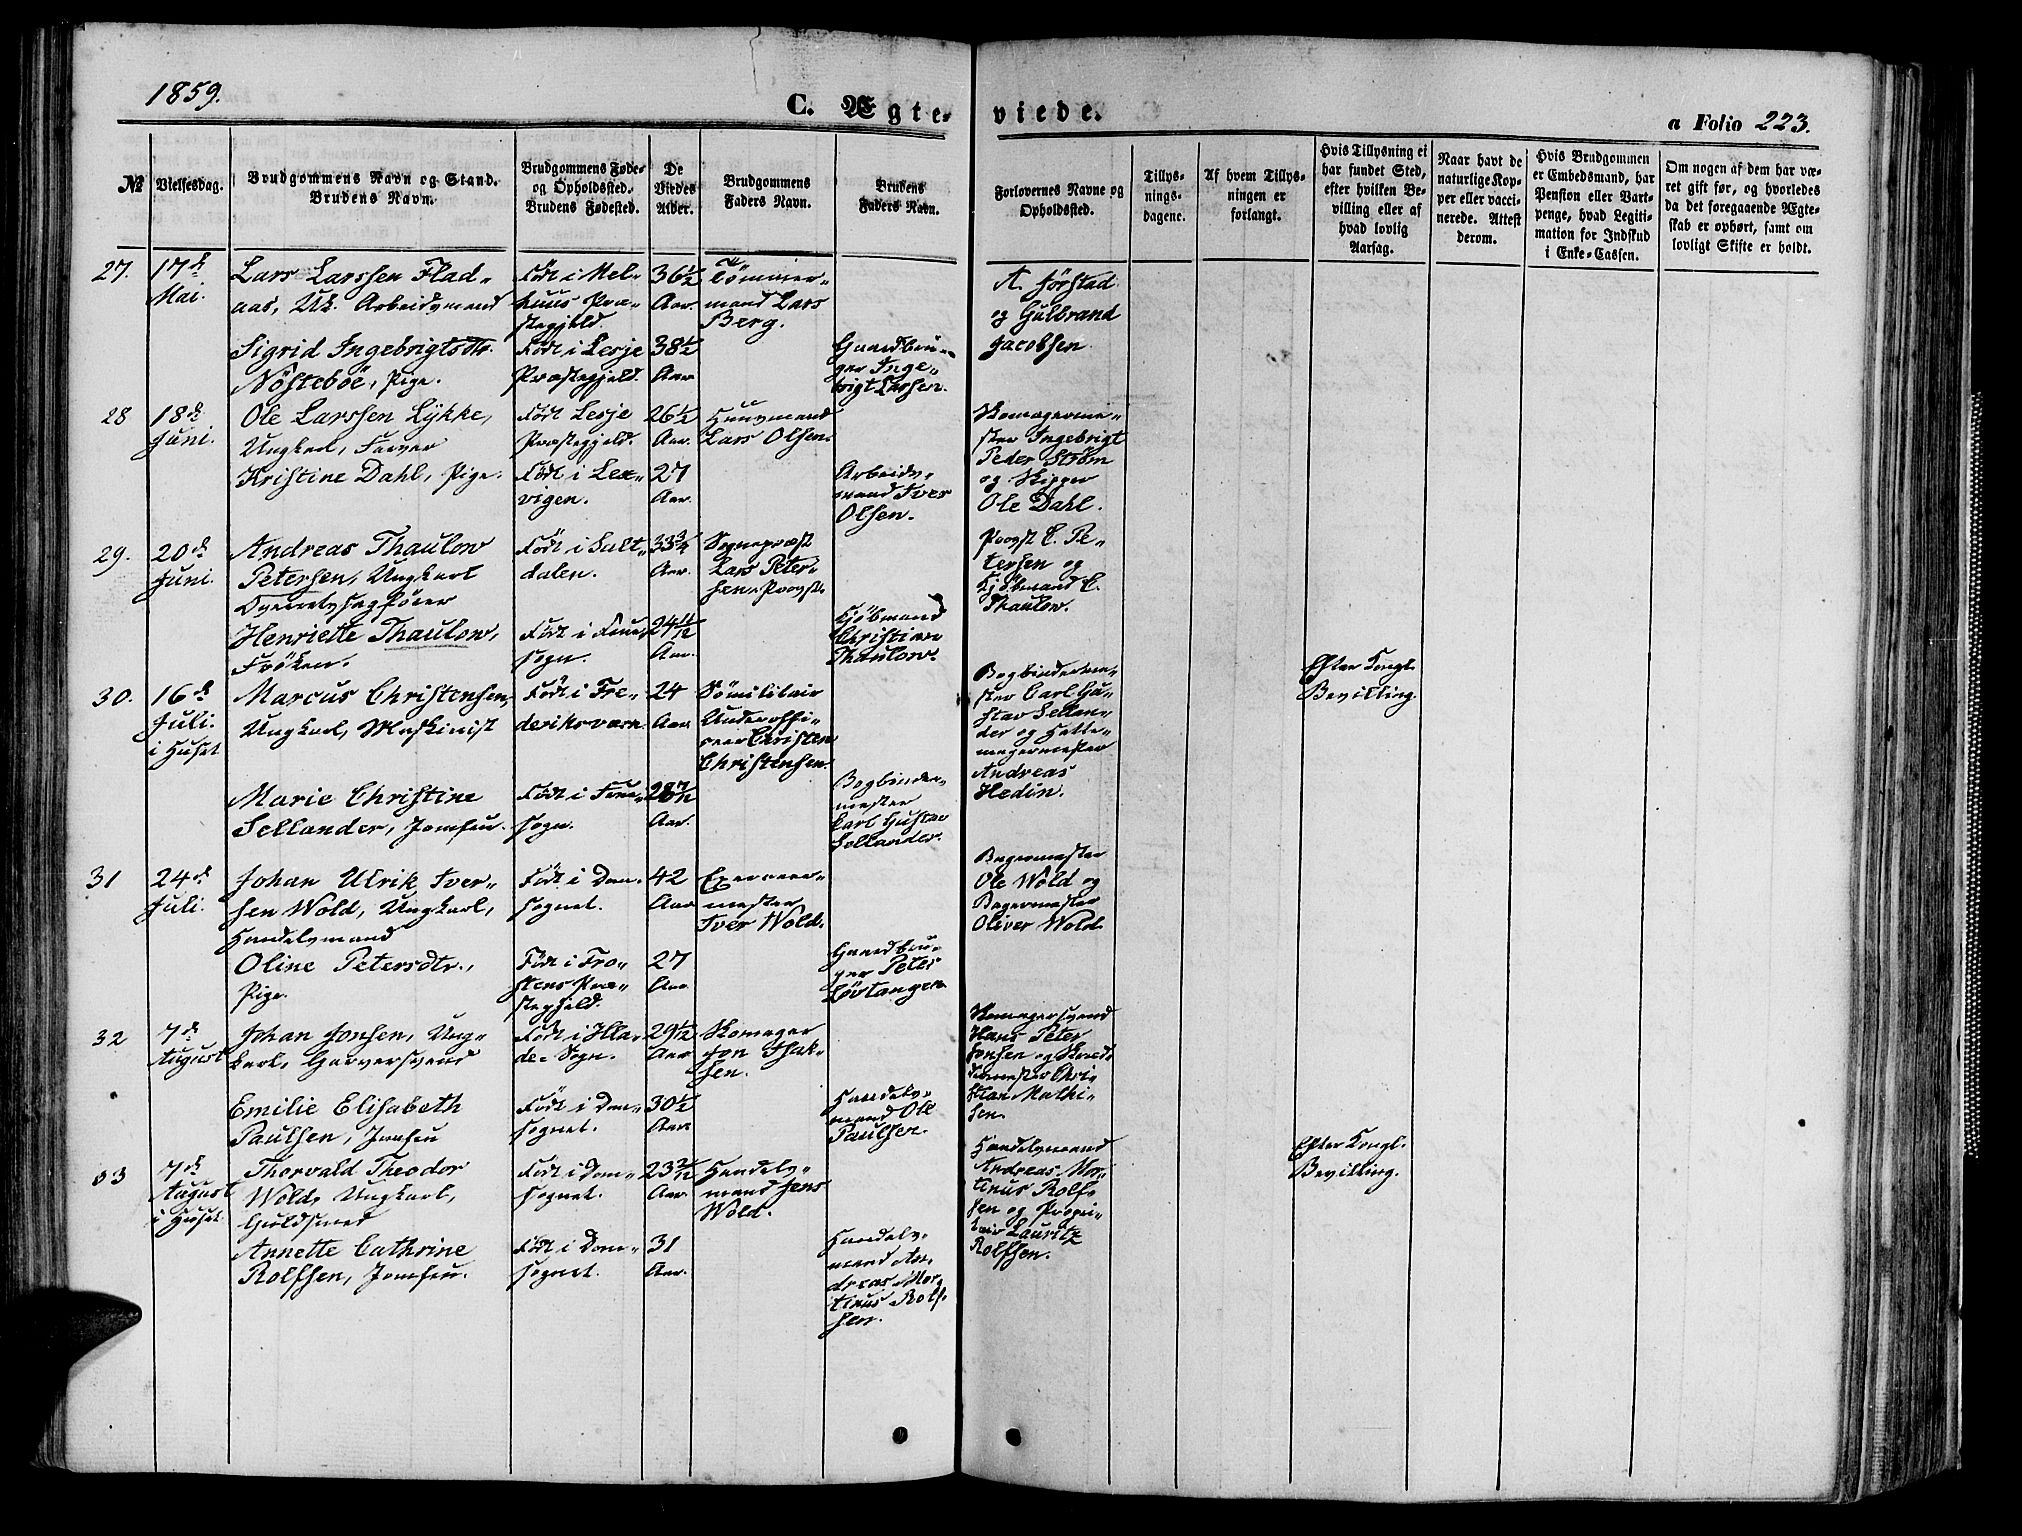 1859.
C. Ægte-
viede.
a Folio 223.
No
Vielsesdag.
Brudgommens Navn og Stand.
Brudens Navn.
Brudgommens Føde-
og Opholdssted.
Brudens Fødested.
De
Viedes
Alder.
Brudgommens
Faders Navn.
Brudens
Faders Navn.
Forlovernes Navne og
Opholdssted.
Tillys-
nings-
dagene.
Af hvem Tillys-
ningen er
forlangt.
Hvis Tillysning ei
har fundet Sted,
efter hvilken Be-
villing eller af
hvad lovlig
Aarsag.
Naar havt de
naturlige Kop-
per eller vacci-
nerede. Attest
derom.
Hvis Brudgommen
er Embedsmand, har
Pension eller Vart-
penge, hvad Legiti-
mation for Indskud
i Enke-Cassen.
Om nogen af dem har væ-
ret gift før, og hvorledes
da det foregaaende Ægte-
skab er ophørt, samt om
lovligt Skifte er holdt.
27.
17de
Mai.
Lars Larssen Flad-
aas, Uk. Arbeidsmand
Født i Mel-
huus Præ-
stegjeld.
36½
Aar.
Tømmer-
mand Lars
Berg.
A. Jørstad
og Gulbrand
Jacobsen.
Sigrid Ingebrigtsdtr.
Nöstebøe, Pige.
Født i Lesje
Præstegjeld.
38½
Aar
Gaardbru-
ger Inge-
brigt Larsen.
28
18de
Juni.
Ole Larssen Lykke,
Ungkarl, Farver
Født Lesje
Præstegjeld.
26½
Aar.
Huusmand
Lars Olsen.
Skomagerme-
ster Ingebrigt
Peder Strøm
og Skipper
Ole Dahl.
Kristine Dahl, Pige.
Født i Lex-
vigen.
27
Aar.
Arbeids-
mand Iver
Olsen.
29.
20de
Juni.
Andreas Thaulow
Petersen, Ungkarl
Overretssagfører
Født i Salt-
dalen.
33¾
Aar.
Sognepræst
Lars Peter-
sen, Provst.
Provst L. Pe-
tersen og
Kjøbmand C.
Thaulow.
Henriette Thaulow,
Frøken.
Født i Frue
sogn.
24 11/12
Aar.
Kjøbmand
Christian
Thaulow.
30.
16de
Juli.
i Huset
Marcus Christensen,
Ungkarl, Maskinist
Født i Fre-
deriksværn
24
Aar.
Sømilitair
Underoffi-
ceer Christen
Christensen.
Bogbinderme-
ster Carl Gu-
stav Sellan-
der og Hatte-
magermester
Andreas
Hedin.
Efter Kongl.
Bevilling.
Marie Christine
Sellander, Jomfru.
Født i Frue-
sogn.
28 7/12
Aar.
Bogbinder-
mester
Carl Gustav
Sellander.
31
24de
Juli.
Johan Ulrik Iver-
sen Wold, Ungkarl,
Handelsmand
Født i Dom-
sognet.
42
Aar
Exerceer-
mester
Iver Wold.
Bagermester
Ole Wold og
Bagermester
Oliver Wold.
Oline Petersdtr.,
Pige.
Født i Fro-
stens Præ-
stegjeld.
27
Aar
Gaardbru-
ger Peter
Løvtangen
32
7de
August
Johan Jonsen, Ung-
karl, Garversvend
Født i Hla-
de-Sogn.
29 1/12
Aar
Skomager
Jon Isak-
sen.
Skomagersvend
Hans Peter
Jonsen og Skræd-
dermester Chri-
stian Mathi-
sen.
Emilie Elisabeth
Paulsen, Jomfru
Født i Dom-
sognet.
30½
Aar.
Handels-
mand Ole
Paulsen.
33
7de
August
i Huset
Thorvald Theodor
Wold, Ungkarl,
Guldsmed
Født i Dom-
sognet.
23 2/12
Aar.
Handels-
mand Jens
Wold.
Handelsmand
Andreas Mor-
tinus Rolf-
sen og Propri-
tair Lauritz
Rolfsen.
Efter Kongl.
Bevilling.
Annette Cathrine
Rolfsen, Jomfru.
Født i Dom-
sognet.
31
Aar.
Handels-
mand An-
dreas Mor-
tinus Rolf-
sen.